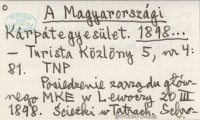 A Magyarországi
Kárpátegyesület. 1898...
- Turista Közlöny 5, nr 4:
81. TNP
Posiedzenie zarządu głów-
nego MKE w Lewoczy 20 III
1898. Ścieżki w Tatrach, Schro-